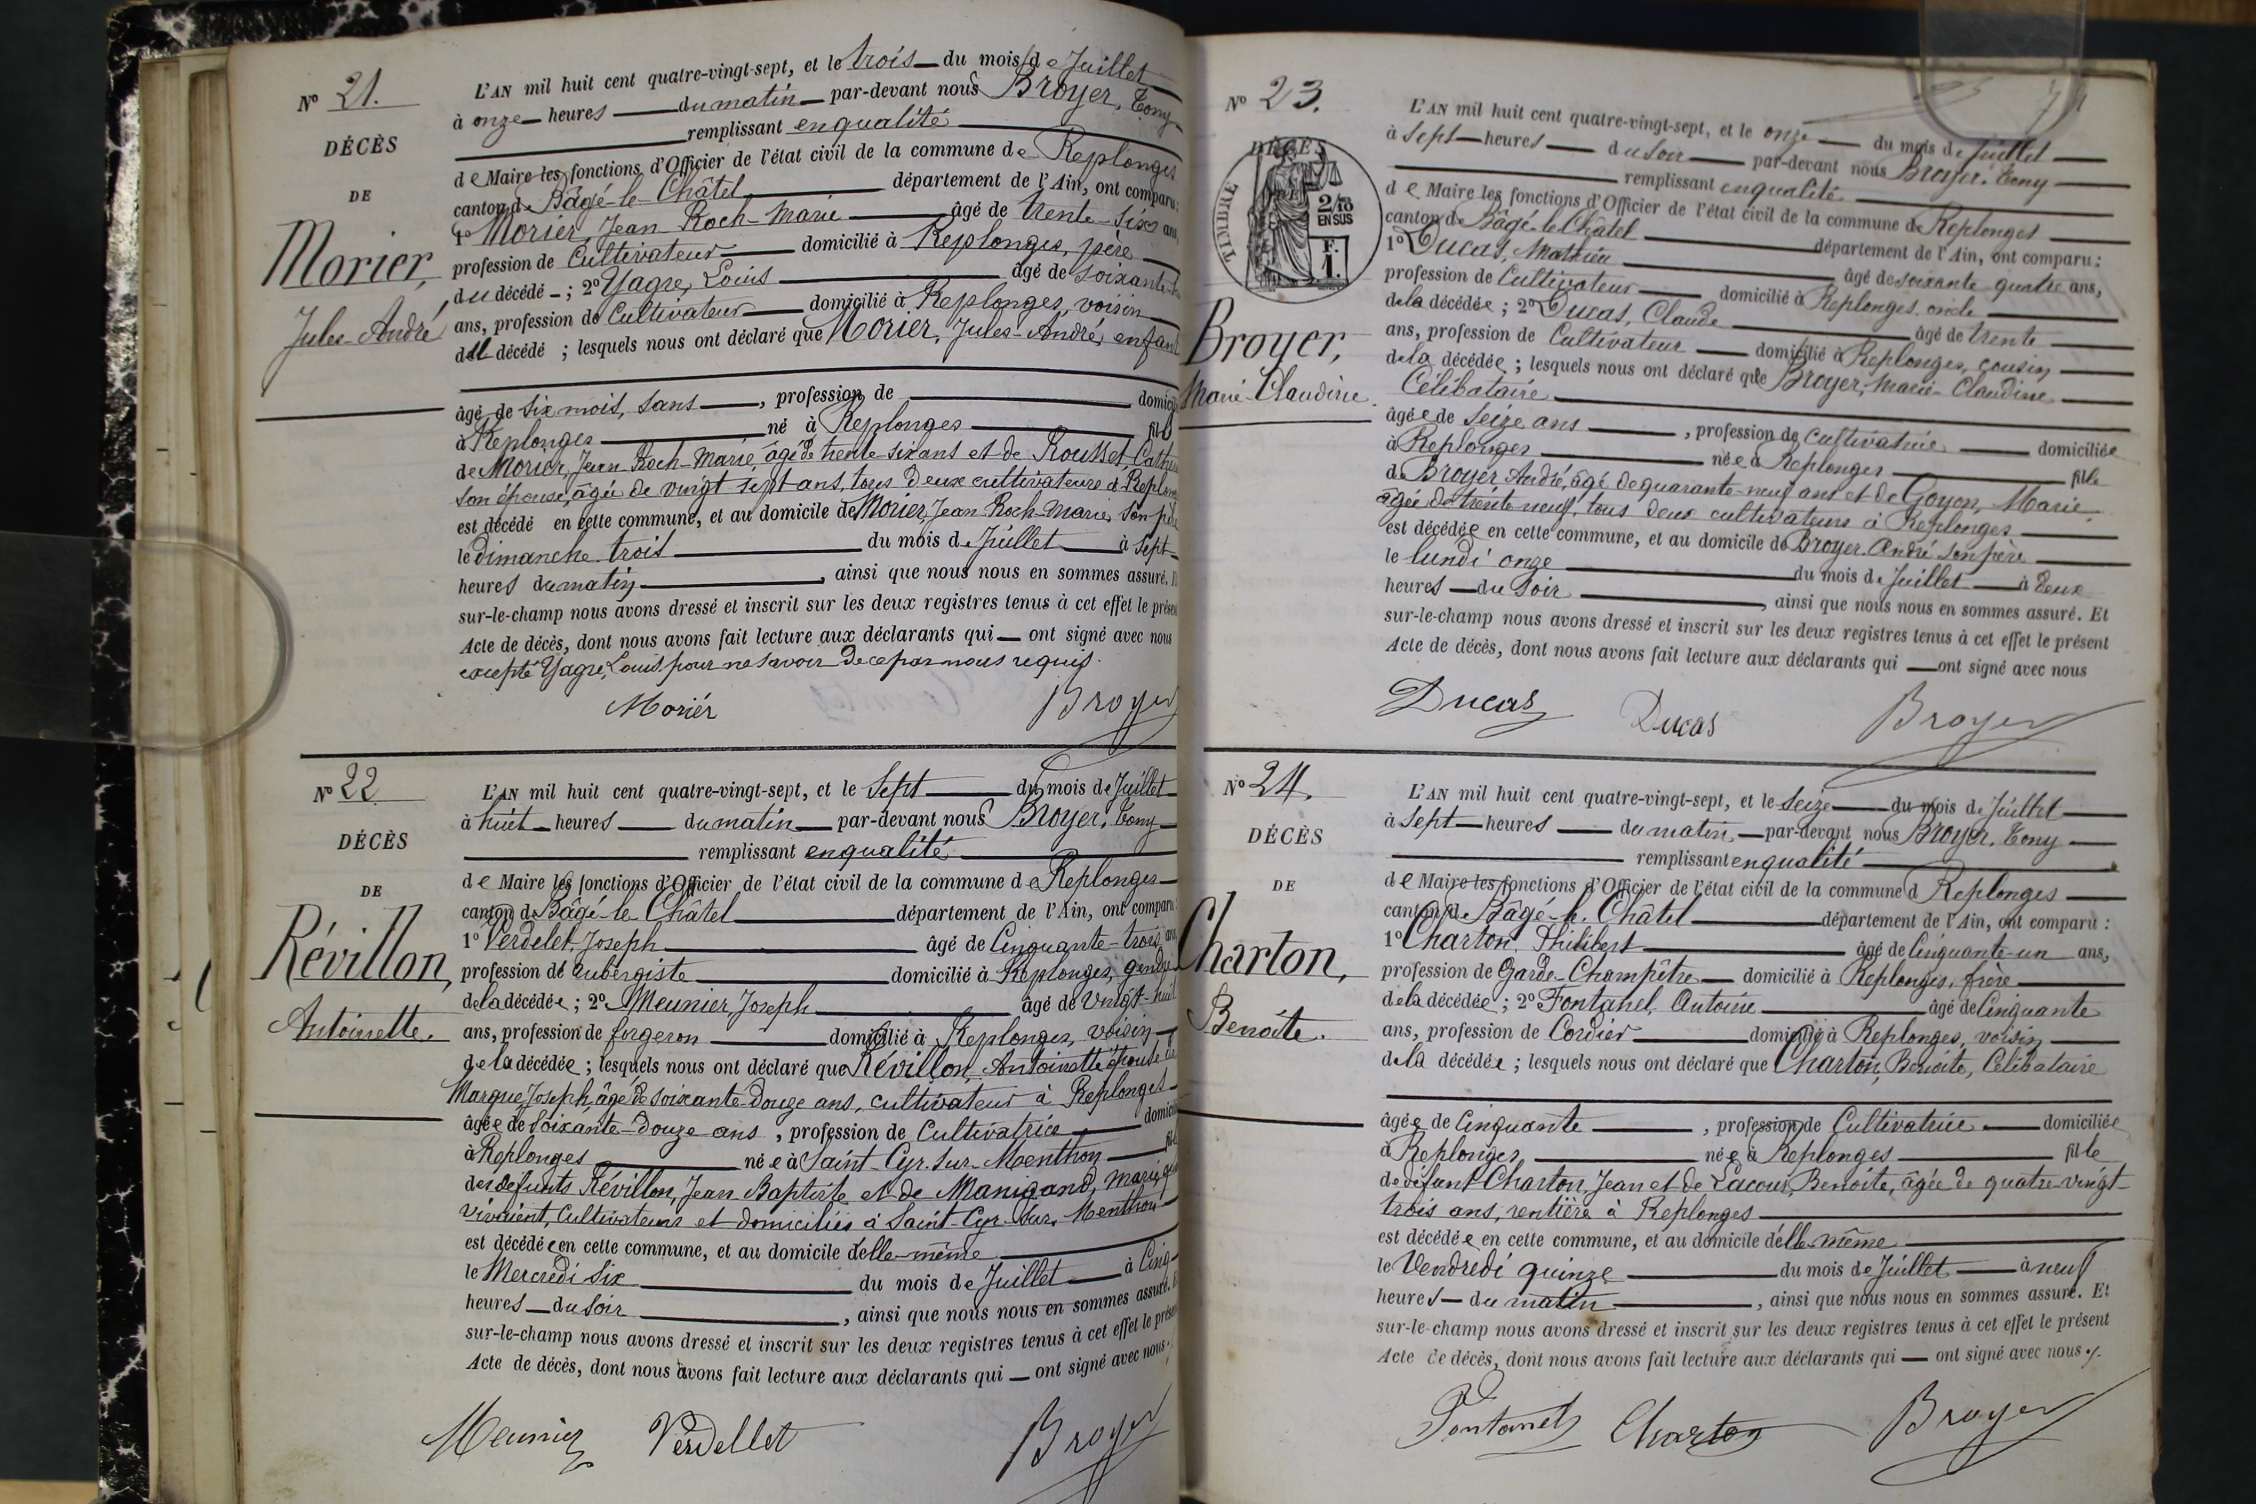 N° 21.
DÉCÈS
DE
Morier,
Jules-André
L'AN mil huit cent quatre-vingt-sept, et le trois du mois de Juillet
à onze heures du matin par-devant nous Broyer, Tony
remplissant en qualité
de Maire les fonctions d'Officier de l'état civil de la commune de Replonges
canton de Bâgé-le-Châtel département de l'Ain, ont comparu:
1° Morier Jean Roch-Marie âgé de trente-six ans,
profession de Cultivateur domicilié à Replonges, père
du décédé; 2° Yagre, Louis âgé de soixante
ans, profession de Cultivateur domicilié à Replonges, voisin
du décédé; lesquels nous ont déclaré que Morier, Jules-André, enfant
âgé de six mois, sans, profession de domicilié
à Replonges né à Replonges fils
de Morier, Jean Roch-Marie, âgé de trente-six ans et de Rousset,
son épouse, âgée de vingt sept ans, tous deux cultivateurs à Replonges
est décédé en cette commune, et au domicile de Morier, Jean-Roch-Marie, son père
le dimanche trois du mois de Juillet à sept
heures du matin, ainsi que nous nous en sommes assuré. Et
sur-le-champ nous avons dressé et inscrit sur les deux registres tenus à cet effet le présent
Acte de décès, dont nous avons fait lecture aux déclarants qui ont signé avec nous
excepté Yagre, Louis pour ne savoir de ce par nous requis.
Moriér Broyer
N° 22
DÉCÈS
DE
Révillon,
Antoinette.
L'AN mil huit cent quatre-vingt-sept, et le sept du mois de Juillet
à huit heures du matin par-devant nous Broyer, Tony
remplissant en qualité
de Maire les fonctions d'Officier de l'état civil de la commune de Replonges
canton de Bâgé-le-Châtel département de l'Ain, ont comparu:
1° Verdelet, Joseph âgé de Cinquante-trois ans
profession de aubergiste domicilié à Replonges, gendre
de la décédée; 2° Meunier Joseph âgé de vingt-huit
ans, profession de forgeron domicilié à Replonges, voisin
de la décédée; lesquels nous ont déclaré que Révillon, Antoinette épouse de
Margue Joseph, âgé de soixante-douze ans, cultivateur à Replonges
âgée de Soixante-douze ans, profession de Cultivatrice domiciliée
à Replonges née à Saint-Cyr-sur-Menthon fille
des défunts Révillon, Jean Baptiste et de Manigand, Marie, qui
vivaient, Cultivateurs et domiciliés à Saint-Cyr-sur-Menthon
est décédée en cette commune, et au domicile d'elle-même
le Mercredi Six du mois de Juillet à Cinq
heures du soir, ainsi que nous nous en sommes assuré. Et
sur-le-champ nous avons dressé et inscrit sur les deux registres tenus à cet effet le présent
Acte de décès, dont nous avons fait lecture aux déclarants qui ont signé avec nous.
Meunier Verdellet Broyer
N° 23.
DÉCÈS
TIMBRE
2/10
EN SUS
F.
1.
Broyer,
Marie-Claudine.
L'AN mil huit cent quatre-vingt-sept, et le onze du mois de Juillet
à Sept heures du soir par-devant nous Broyer, Tony
remplissant en qualité
de Maire les fonctions d'Officier de l'état civil de la commune de Replonges
canton de Bâgé-le-Châtel département de l'Ain, ont comparu:
1° Ducas, Mathieu âgé de soixante quatre ans,
profession de Cultivateur domicilié à Replonges, oncle
de la décédée; 2° Ducas, Claude âgé de trente
ans, profession de Cultivateur domicilié à Replonges, cousin
de la décédée; lesquels nous ont déclaré que Broyer, Marie-Claudine
Célibataire
âgée de seize ans, profession de cultivatrice domiciliée
à Replonges née à Replonges fille
de Broyer, André, âgé de quarante-neuf ans et de Goyon, Marie,
âgée de trente neuf, tous deux cultivateurs à Replonges
est décédée en cette commune, et au domicile de Broyer André son père
le lundi onze du mois de Juillet à deux
heures du soir, ainsi que nous nous en sommes assuré. Et
sur-le-champ nous avons dressé et inscrit sur les deux registres tenus à cet effet le présent
Acte de décès, dont nous avons fait lecture aux déclarants qui ont signé avec nous
Ducas Ducas Broyer
N° 24.
DÉCÈS
DE
Charton,
Benoîte.
L'AN mil huit cent quatre-vingt-sept, et le Seize du mois de Juillet
à Sept heures du matin par-devant nous Broyer, Tony
remplissant en qualité
de Maire les fonctions d'Officier de l'état civil de la commune d Replonges
canton de Bâgé-le-Châtel département de l'Ain, ont comparu:
1° Charton Philibert âgé de Cinquante-un ans,
profession de Garde-Champêtre domicilié à Replonges, frère
de la décédée; 2° Fontanel, Antoine âgé de Cinquante
ans, profession de Cordier domicilié à Replonges, voisin
de la décédée; lesquels nous ont déclaré que Charton, Benoîte, Célibataire
âgée de Cinquante, profession de Cultivatrice domiciliée
à Replonges, née à Replonges fille
de défunt Charton, Jean et de Lacour, Benoîte, âgée de quatre-vingt-
trois ans, rentière à Replonges
est décédée en cette commune, et au domicile d'elle-même
le Vendredi quinze du mois de Juillet à neuf
heures du matin, ainsi que nous nous en sommes assuré. Et
sur-le-champ nous avons dressé et inscrit sur les deux registres tenus à cet effet le présent
Acte de décès, dont nous avons fait lecture aux déclarants qui ont signé avec nous.
Fontanel Charton Broyer